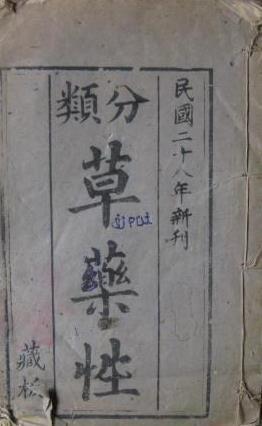 民國二十八年新刊
分類
草藥性
藏板